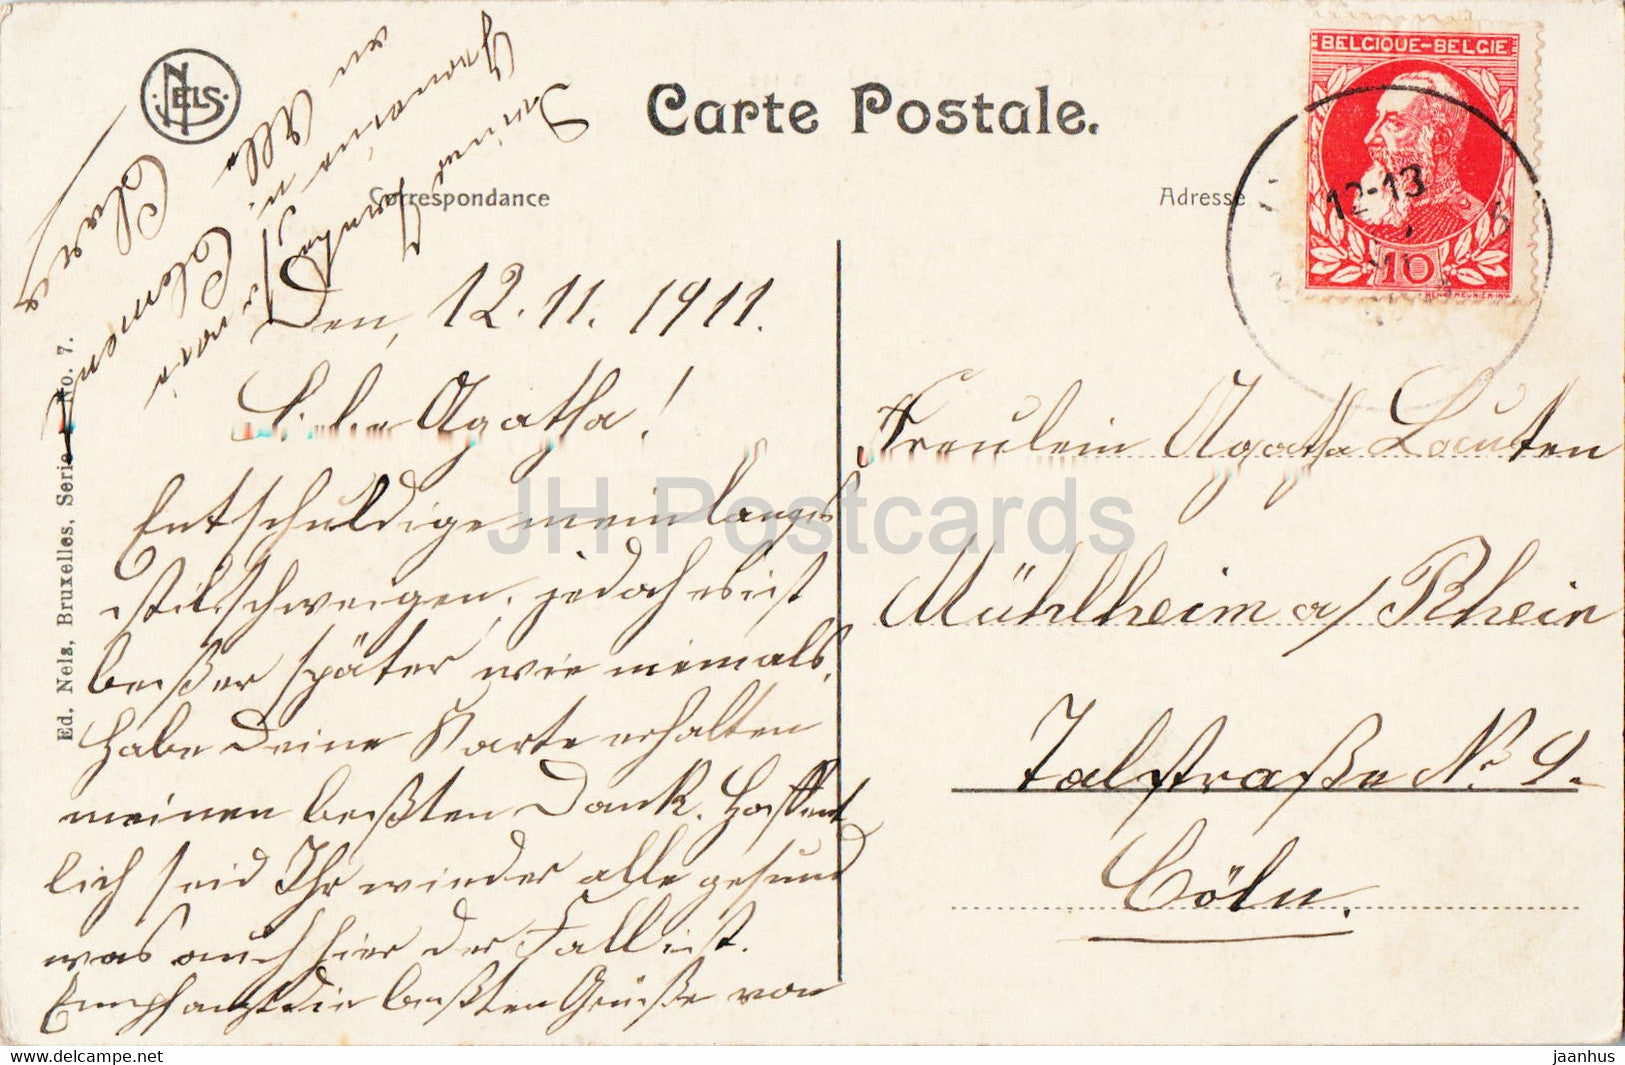 NELS
Carte Postale.
BELGIQUE-BELGIE
12-13
10
Correspondance
Adresse
Den, 12.11.1911.
Liebe Agatha!
Entschuldige mein langes
stillschweigen, jedoch es ist
beßer später wie niemals.
Habe Deine Karte erhalten
meinen beßten Dank. Hoffent
lich seid Ihr wieder alle gesund
was auch hier der Fall ist.
Empfangt die beßten Grüße von
Deiner
u Alle
Clemen
Clara
Freulein Agatha Locuten
Mühlheim a/Rhein
Talstraße No 9.
Cöln.
Ed. Nels, Bruxelles, Serie No. 7.
JH Postcards
www.delcampe.net
jaanhus